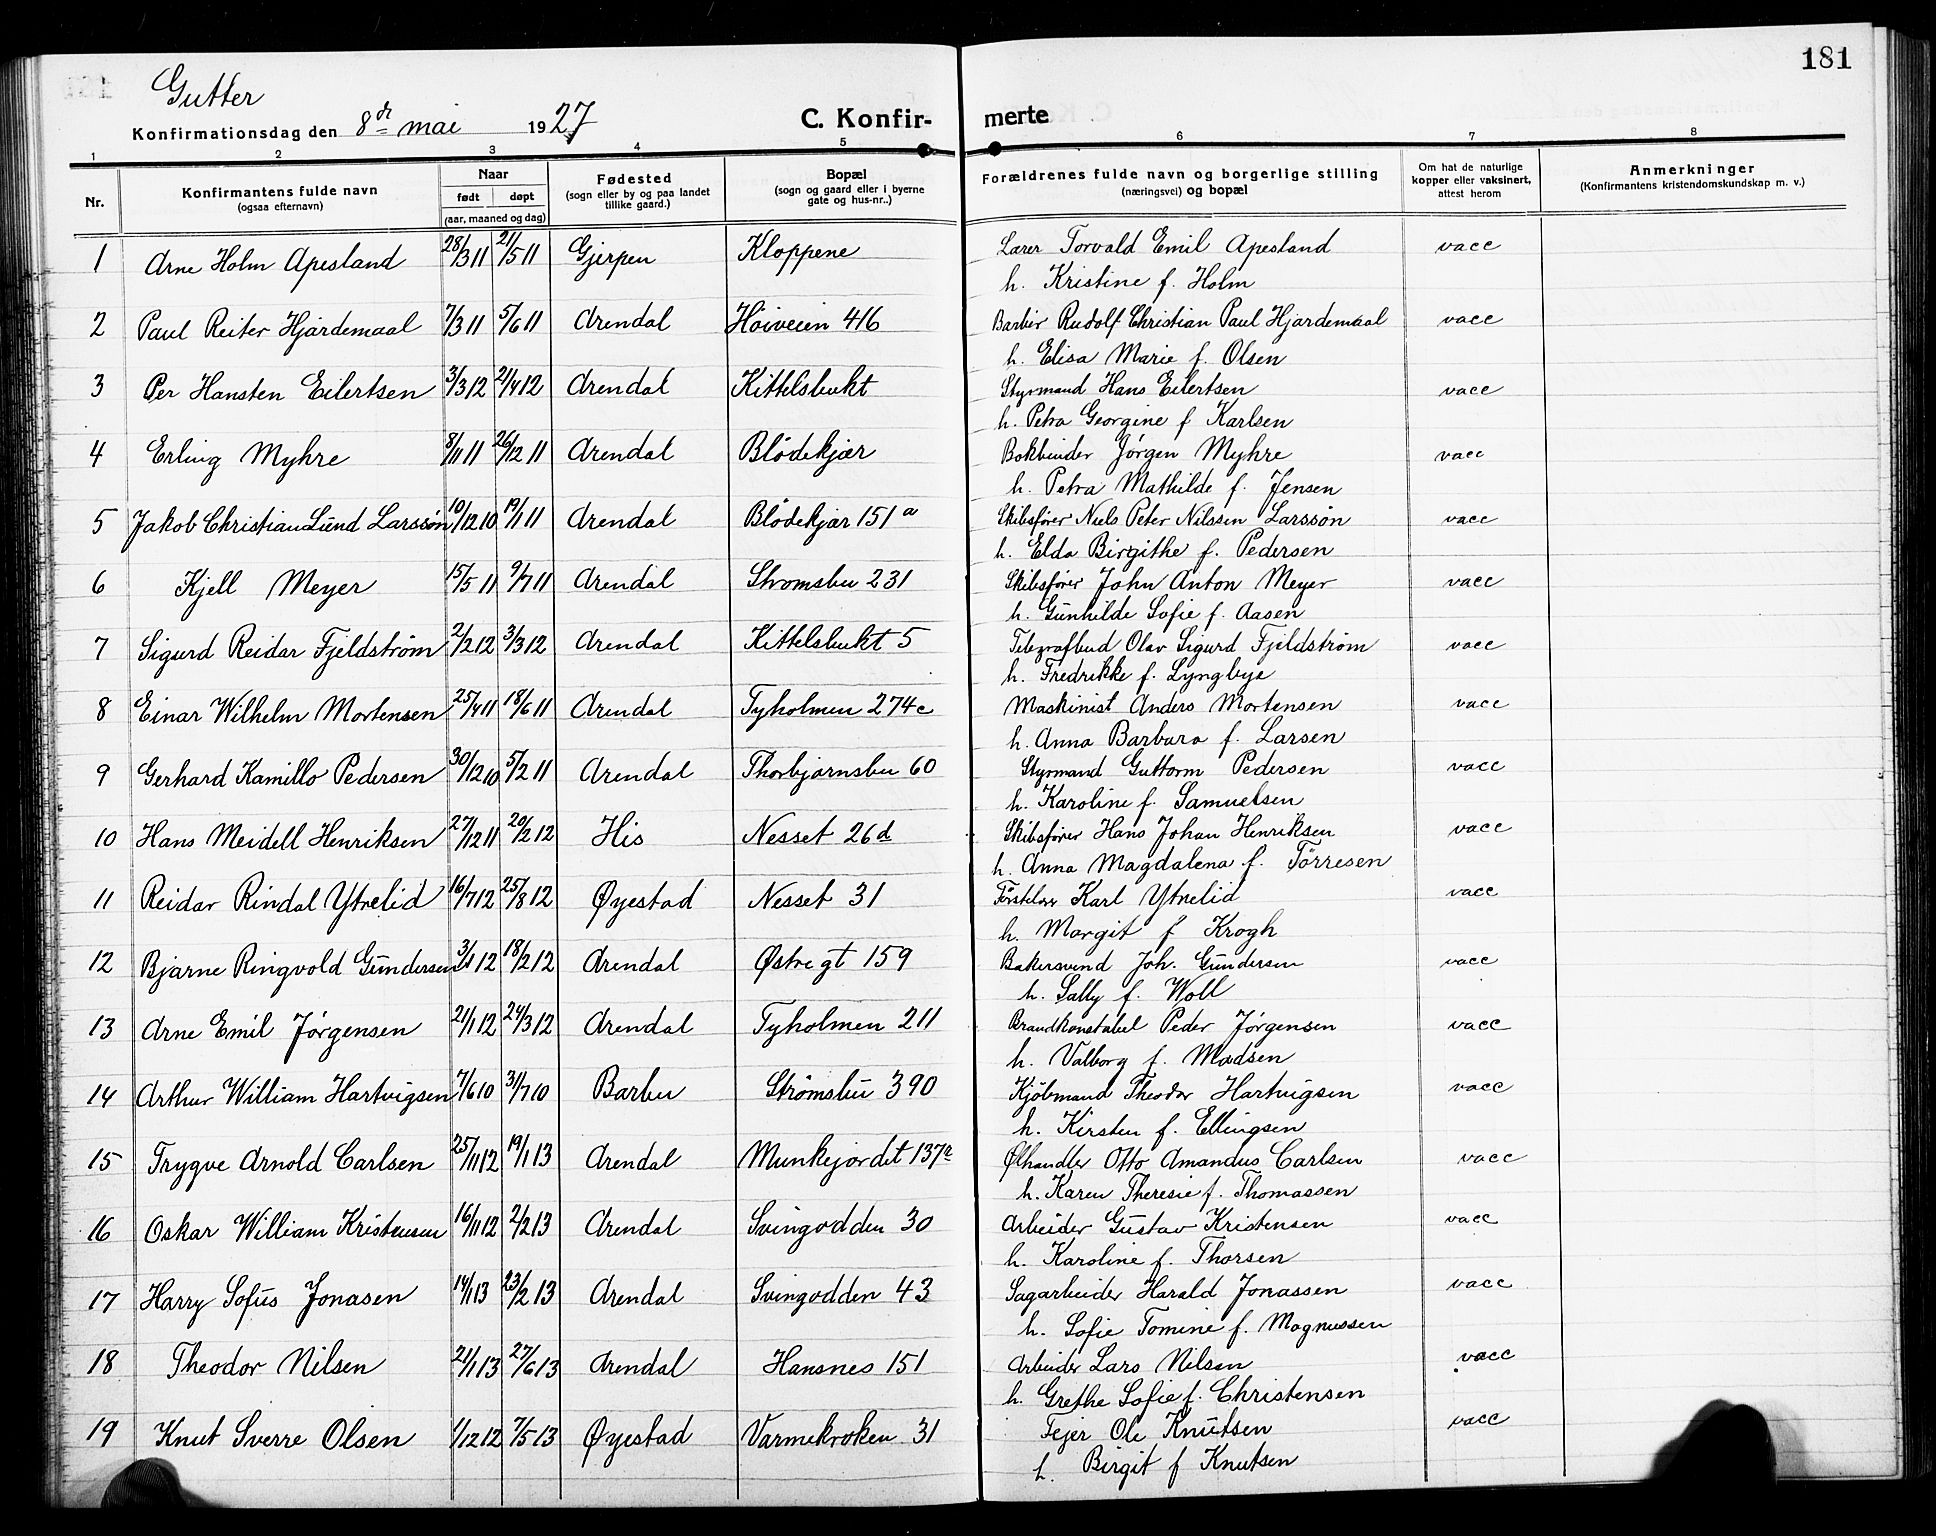 181
Gutter
Konfirmationsdag den 8de mai 1927
C. Konfirmerte
1 2 3 4 5 6 7 8
Nr.
Konfirmantens fulde navn
(ogsaa efternavn)
Naar
født døpt
(aar, maaned og dag)
Fødested
(sogn eller by og paa landet
tillike gaard.)
Bopæl
(sogn og gaard eller i byerne
gate og hus-nr..)
Forældrenes fulde navn og borgerlige stilling
(næringsvei) og bopæl
Om hat de naturlige
kopper eller vaksinert,
attest herom
Anmerkninger
(Konfirmantens kristendomskundskap m. v.)
1 Arne Holm Apesland 28/3 11 21/5 11 Gjerpen Kloppene Lærer Torvald Emil Apesland vacc
h. Kristine f. Holm
2 Paul Reiter Hjardemaal 7/3 11 5/6 11 Arendal Høiveien 416 Barbér Rudolf Christian Paul Hjardemaal vacc
h. Elisa Marie f. Olsen
3 Per Hansten Eilertsen 3/3 12 21/4 12 Arendal Kittelsbukt Styrmand Hans Eilertsen vacc
h. Petra Georgine f Karlsen
4 Erling Myhre 8/11 11 26/12 11 Arendal Blødekjær Bokbinder Jørgen Myhre vacc
h. Petra Mathilde f. Jensen
5 Jakob Christian Lund Larssøn 10/12 10 19/1 11 Arendal Blødekjær 151a Skibsfører Niels Peter Nilssen Larssøn vacc
h. Elda Birgithe f. Pedersen
6 Kjell Meyer 15/5 11 9/7 11 Arendal Strømsbu 231 Skibsfører John Anton Meyer vacc
h. Gunhilde Sofie f. Aasen
7 Sigurd Reidar Fjeldstrøm 2/2 12 3/3 12 Arendal Kittelsbukt 5 Telegrafbud Olav Sigurd Fjeldstrøm vacc
h. Fredrikke f. Lyngbye
8 Einar Wilhelm Mortensen 25/4 11 18/6 11 Arendal Tyholmen 274c Maskinist Anders Mortensen vacc
h. Anna Barbara f. Larsen
9 Gerhard Kamillo Pedersen 30/12 10 5/2 11 Arendal Thorbjørnsbu 60 Styrmand Guttorm Pedersen vacc
h. Karoline f. Samuelsen
10 Hans Meidell Henriksen 27/12 11 20/2 12 His Nesset 26d Skibsfører Hans Johan Henriksen vacc
h. Anna Magdalena f. Tørresen
11 Reidar Rindal Ytrelid 16/7 12 25/8 12 Øyestad Nesset 31 Førstelærer Karl Ytrelid vacc
h. Margit f Krogh
12 Bjarne Ringvold Gundersen 3/1 12 18/2 12 Arendal Østregt 159 Bakersvend Joh. Gundersen vacc
h. Sally f. Woll
13 Arne Emil Jørgensen 21/1 12 24/3 12 Arendal Tyholmen 211 Brandkonstabel Peder Jørgensen vacc
h. Valborg f. Madsen
14 Arthur William Hartvigsen 7/6 10 31/7 10 Barbu Strømsbu 390 Kjøbmand Theodor Hartvigsen vacc
h. Kirsten f. Ellingsen
15 Trygve Arnold Carlsen 25/11 12 19/1 13 Arendal Munkejordet 137 Ølhandler Otto Amandus Carlsen vacc
h. Karen Theresie f. Thomassen
16 Oskar William Kristensen 16/11 12 2/2 13 Arendal Svingodden 30 Arbeider Gustav Kristensen vacc
h. Karoline f. Thorsen
17 Harry Sofus Jonasen 14/1 13 23/2 13 Arendal Svingodden 43 Sagarbeider Harald Jonassen vacc
h. Sofie Tomine f. Magnussen
18 Theodor Nilsen 21/1 13 27/6 13 Arendal Hansnes 151 Arbeider Lars Nilsen vacc
h. Grethe Sofie f. Christensen
19 Knut Sverre Olsen 1/12 12 7/5 13 Øyestad Varmekroken 31 Fejer Ole Knutsen vacc
h. Birgit f Knutsen